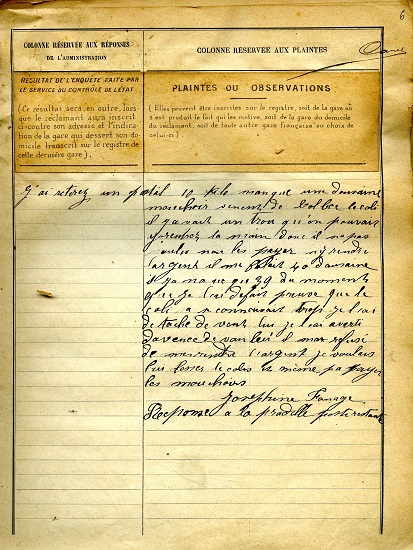 6
COLONNE RÉSERVÉE AUX RÉPONSES
DE L'ADMINISTRATION
COLONNE RÉSERVÉE AUX PLAINTES
RÉSULTAT DE L'ENQUÊTE FAITE PAR
LE SERVICE DU CONTRÔLE DE L'ÉTAT
(Ce résultat sera, en outre, lors-
que le réclamant aura inscrit
ci-contre son adresse et l'indica-
tion de la gare qui dessert son do-
micile transcrit sur le registre de
cette dernière gare).
PLAINTES OU OBSERVATIONS
(Elles peuvent être inscrites sur le registre, soit de la gare où
s'est produit le fait qui les motive, soit de la gare du domicile
du réclamant, soit de toute autre gare française au choix de
celui-ci)
J'ai retirez un postal 10 kilo manque une dousaine
mouchoir venent de Bolbec le coli
il y avait un trou qu'on pouvais
y rentrez la main donc il na pas
voulu les payer ny rendre
l'argent il me falait 40 dousaine
il ya na que 39 du moment
que je l'ai defait preuve que le
coli a convenait trop je l'ai
detaché devent lui je l'ai averti
davence de van lui il mas refusé
de me rendre l'argent je voulais
lui lesser le colis et même pa payer
les mouchoirs
Josephine
Reponse a la pradelle poste restante